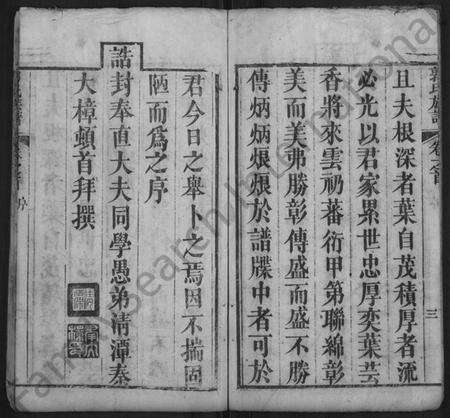 且夫根深者葉自茂積厚者流
必光以君家累世忠厚奕葉芸
香將來雲礽蕃衍甲第聯綿彰
美而美弗勝彰傳盛而盛不勝
傳炳炳烺烺於譜牒中者可於
三
君今日之舉卜之焉因不揣固
陋而爲之序
誥封奉直大夫同學愚弟清潭秦
大樟頓首拜撰
序
FamilySearch International